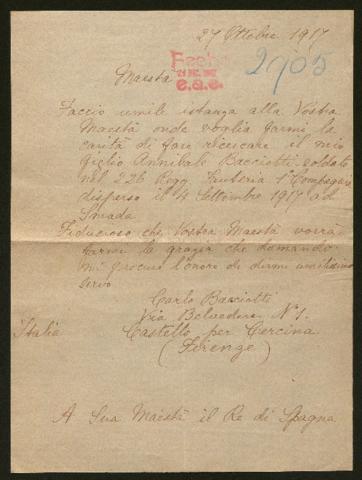 27 Ottobre 1917
Fecho
e.a.c.
2905
Maestà
Faccio umile istanza alla Vostra
Maestà onde voglia farmi la
carità di fare ricercare il mio
figlio Annibale Baciotti soldato
nel 226 Regg Fanteria 1ª Compagnia
disperso il 4 Settembre 1917 ad
Fiducioso che Vostra Maestà vorrà
farmi la grazia che domando
mi procuro l'onore di dirmi umilissimo
servo
Carlo Baciotti
Via Belvedere Nº 1.
Italia Castello per Cercina
(Firenze)
A Sua Maestà il Re di Spagna